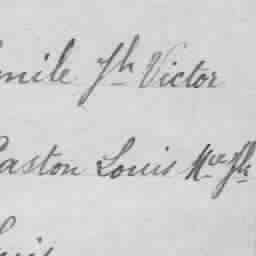 mile Jh Victor
Gaston Louis Mce Jh